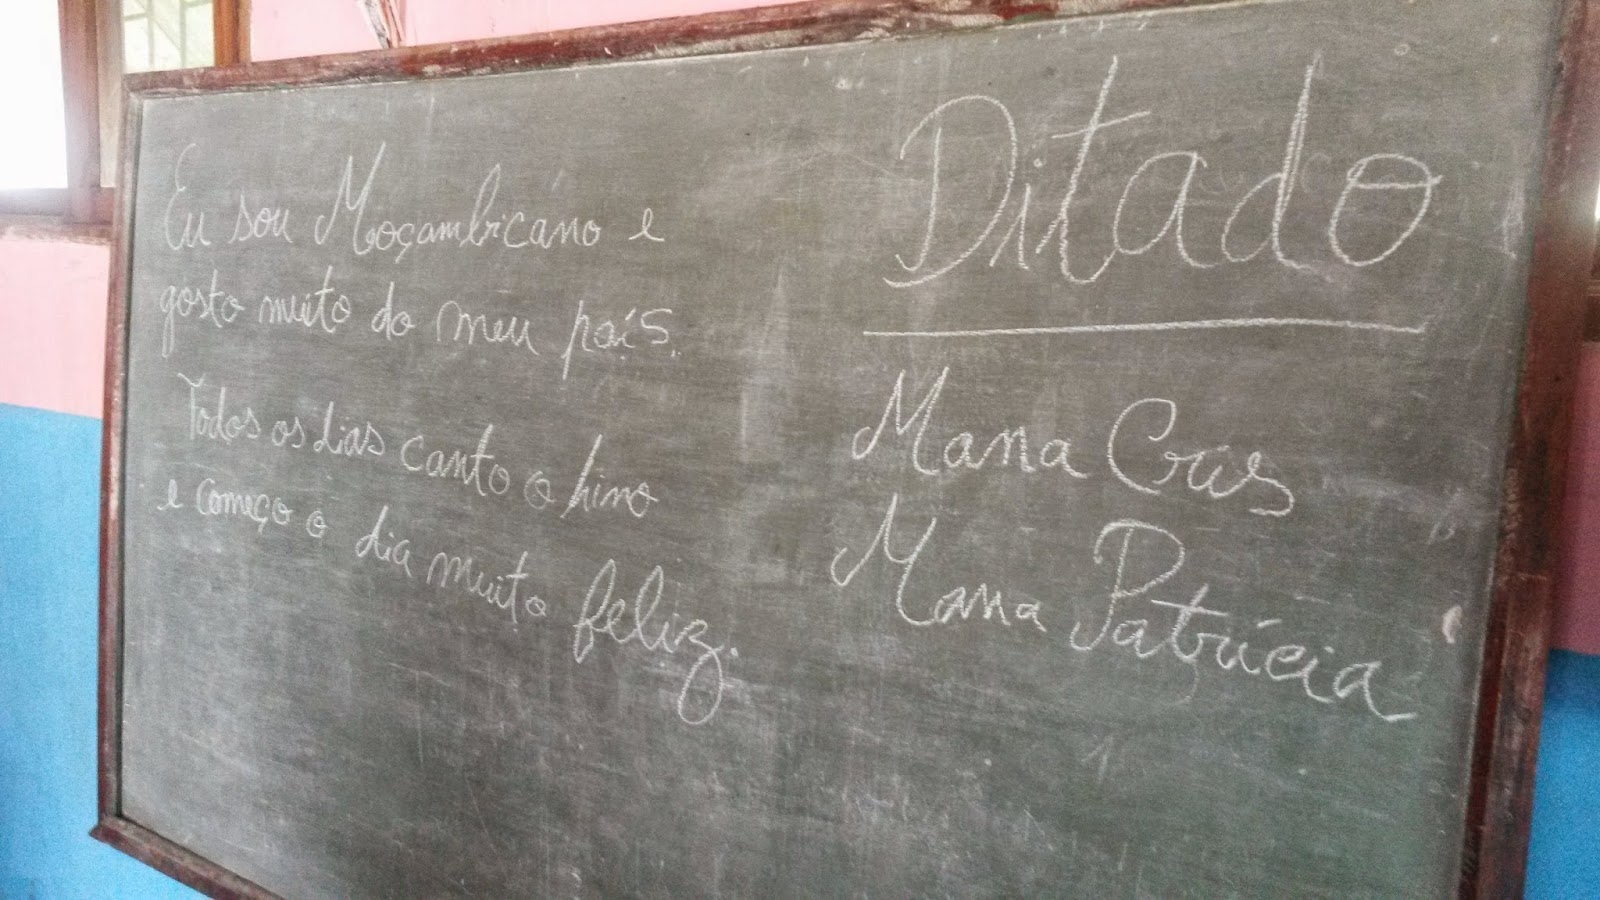 Eu sou Moçambicano e
gosto muito do meu país.
Todos os dias canto o hino
e começo o dia muito feliz.
Ditado
Mana Cris
Mana Patrícia